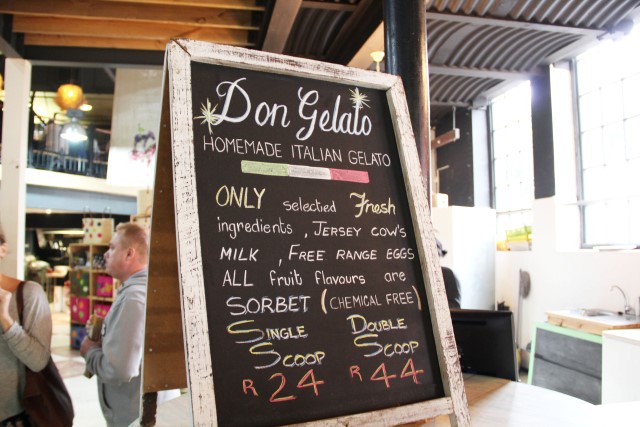 Don Gelato
HOMEMADE ITALIAN GELATO
ONLY selectied Fresh
ingredients, JERSEY COW'S
MILK, FREE RANGE EGGS
ALL fruit flavours are
SORBET (CHEMICAL FREE)
SINGLE DOUBLE
SCOOP SCOOP
R 24 R 44